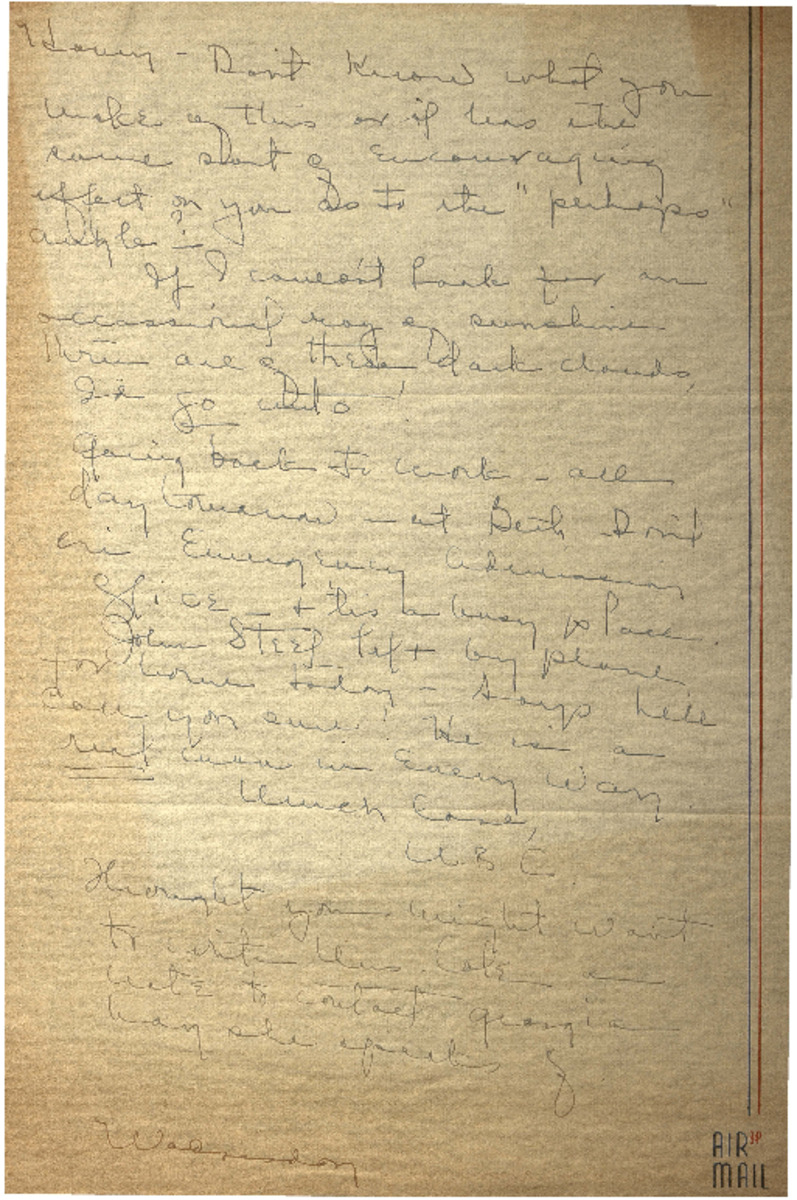 Honey - Don't Know what you
make of this or if has the
same sort of Encouraging
effect on you as to the "perhaps"
angle?
If I couldn't look for an
occasional ray of sunshine
thru all of these dark clouds,
I'd go nuts!
Going back to work - all
day tomorrow - at Beth
Emergency Admission
Office - + tis a busy place.
John Steel left by plane
for home today - Says he'll
call you sure! He is a
man in Every Way.
Much Love,
M.B.E.
Thought you might want
to write Mrs. Cole a
note to contact georgia
way she speaks of
Wednesday
AIR
MAIL